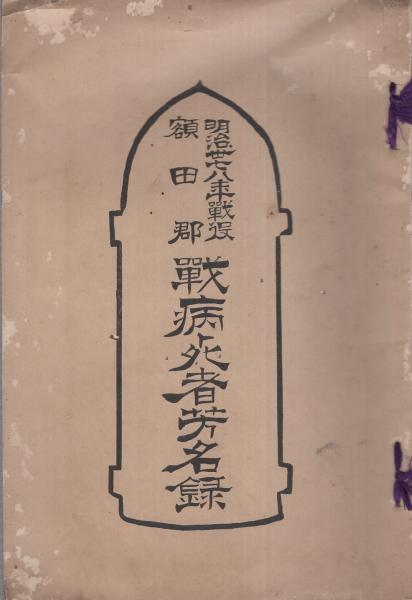 明治卅七八年戰役
額田郡
戰病死者芳名録